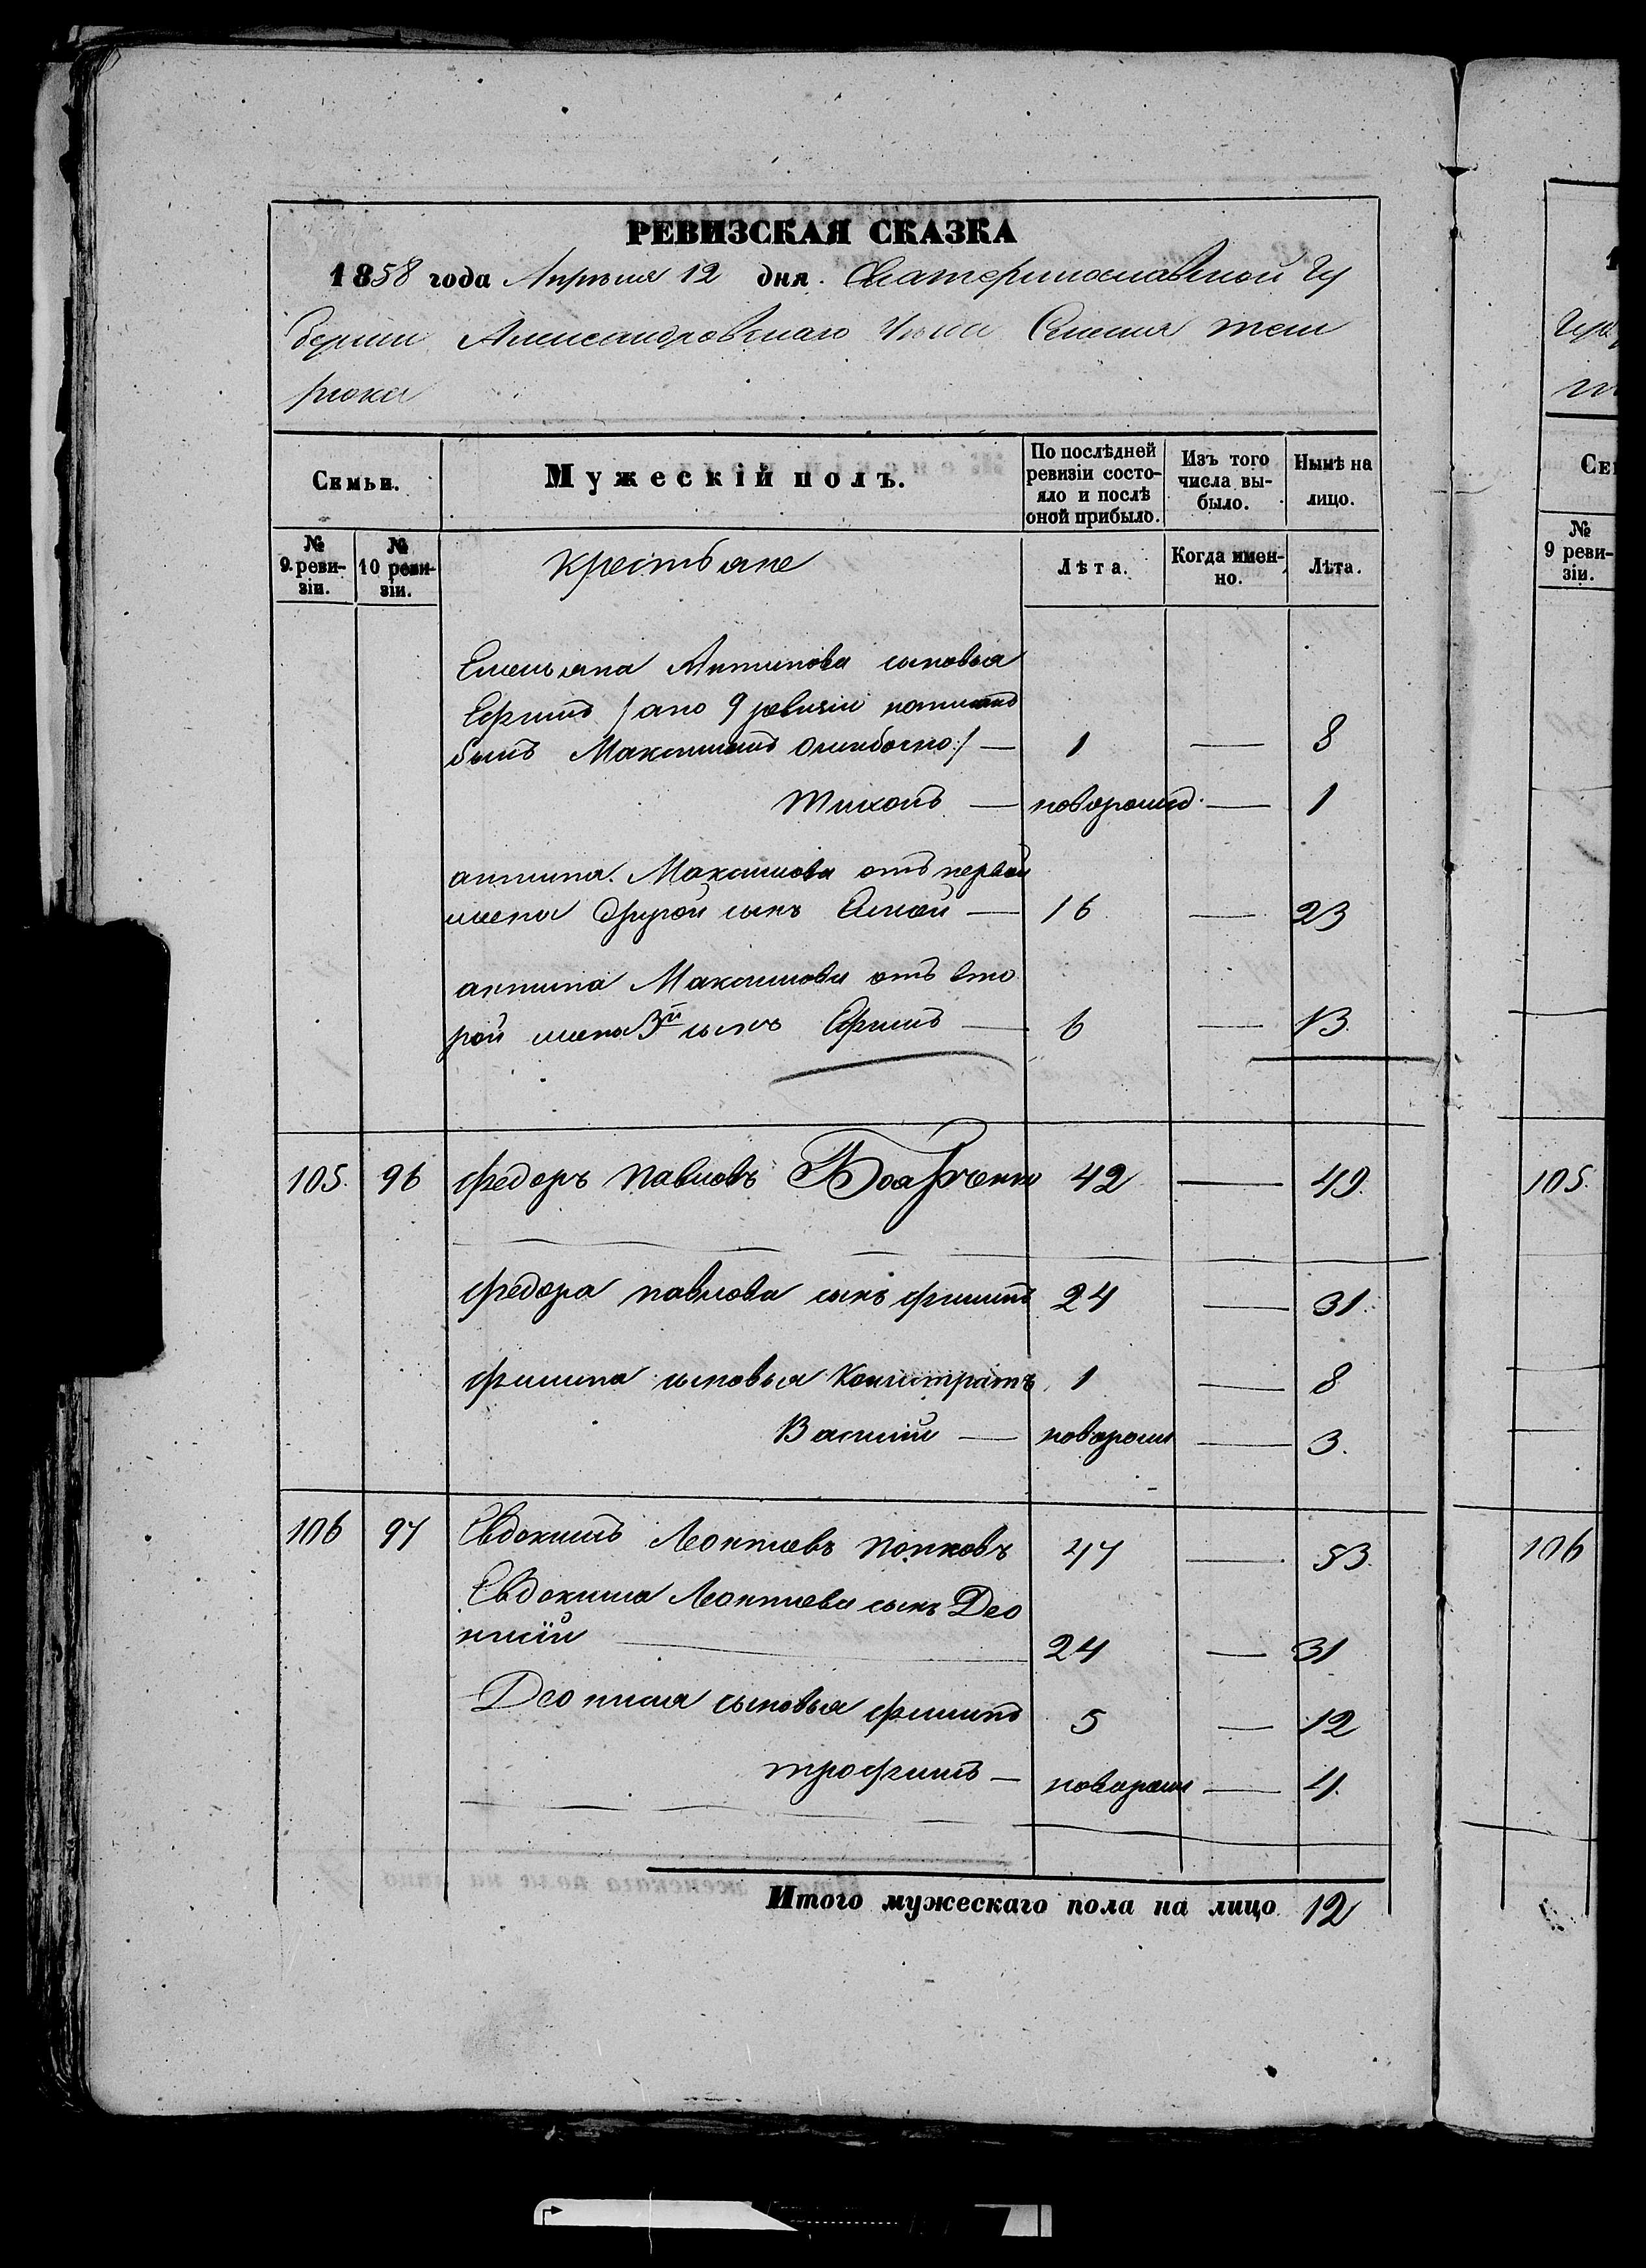 РЕВИЗСКАЯ СКАЗКА
1858 года Апрѣля 12 дня. Екатеринославской Гу
берніи Александровскаго Уѣзда Селенія Тем
рюка
Семьи.
Мужескій полъ.
По послѣдней ревизіи состояло и послѣ оной прибыло.
Изъ того числа выбыло.
Нынѣ на лицо.
№ 9 ревизіи.
№ 10 ревизіи.
Крестьяне
Лѣта.
Когда именно.
Лѣта.
Емельяна Антипова сыновья
Ефимъ /а по 9 ревизіи написанъ
былъ Максимомъ ошибочно:/ — 1 — 8
Тихонъ — новорожд. — 1
антипа Максимова отъ первой
жены другой сынъ — 16 — 23
антипа Максимова отъ вто
рой жены 3й сынъ Ефимъ — 6 — 13.
105. 96 федоръ Павловъ 42 — 49.
федора павлова сынъ филипъ 24 — 31.
филипа сыновья Калистратъ 1 — 8
Василій — новорожд — 3.
106 97 Евдокимъ Леонтіевъ Попковъ 47 — 53.
Евдокима Леонтіева сынъ Део
нисій 24 — 31
Деонисія сыновья филипъ 5 — 12
трофимъ — новорожд — 4.
Итого мужескаго пола на лицо 12
Се
№
9 реви-
зіи.
105.
106